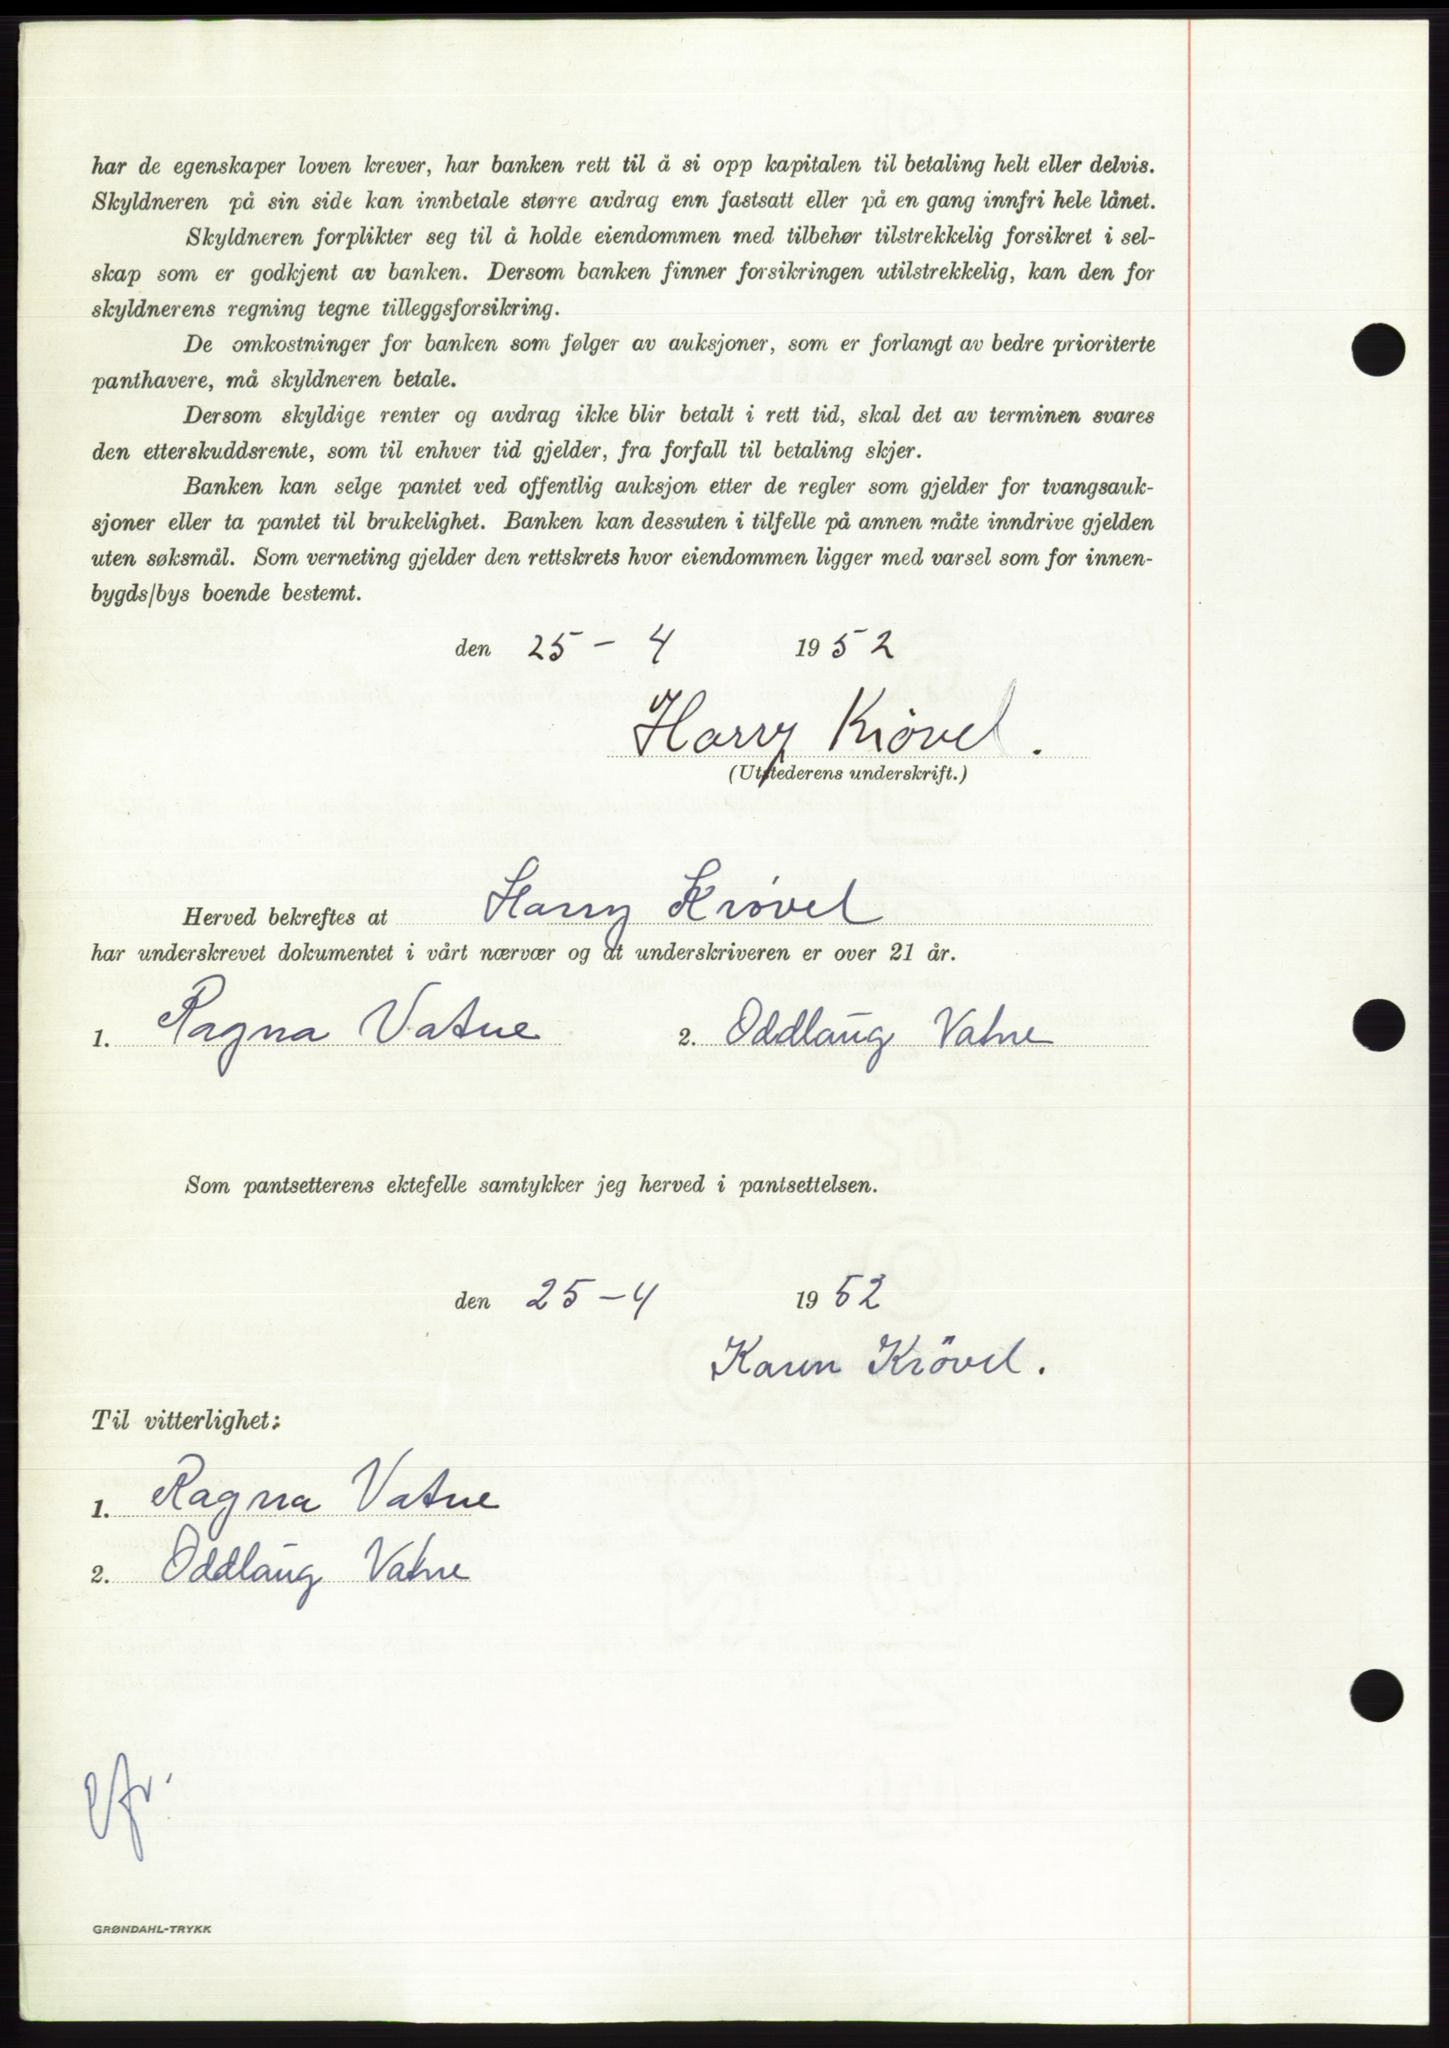 har de egenskaper loven krever, har banken rett til å si opp kapitalen til betaling helt eller delvis.
Skyldneren på sin side kan innbetale større avdrag enn fastsatt eller på en gang innfri hele lånet.
Skyldneren forplikter seg til å holde eiendommen med tilbehør tilstrekkelig forsikret i sel-
skap som er godkjent av banken. Dersom banken finner forsikringen utilstrekkelig, kan den for
skyldnerens regning tegne tilleggsforsikring.
De omkostninger for banken som følger av auksjoner, som er forlangt av bedre prioriterte
panthavere, må skyldneren betale.
Dersom skyldige renter og avdrag ikke blir betalt i rett tid, skal det av terminen svares
den etterskuddsrente, som til enhver tid gjelder, fra forfall til betaling skjer.
Banken kan selge pantet ved offentlig auksjon etter de regler som gjelder for tvangsauk-
sjoner eller ta pantet til brukelighet. Banken kan dessuten i tilfelle på annen måte inndrive gjelden
uten søksmål. Som verneting gjelder den rettskrets hvor eiendommen ligger med varsel som for innen-
bygds/bys boende bestemt.
den 25 - 4 1952
Harry Krövel.
(Utstederens underskrift.)
Herved bekreftes at Harry Krövel
har underskrevet dokumentet i vårt nærvær og at underskriveren er over 21 år.
1. Ragna Vatne 2. Oddlaug Vatne
Som pantsetterens ektefelle samtykker jeg herved i pantsettelsen.
den 25-4 1952
Karen Krövel.
Til vitterlighet:
1. Ragna Vatne
2. Oddlaug Vatne
GRØNDAHL-TRYKK